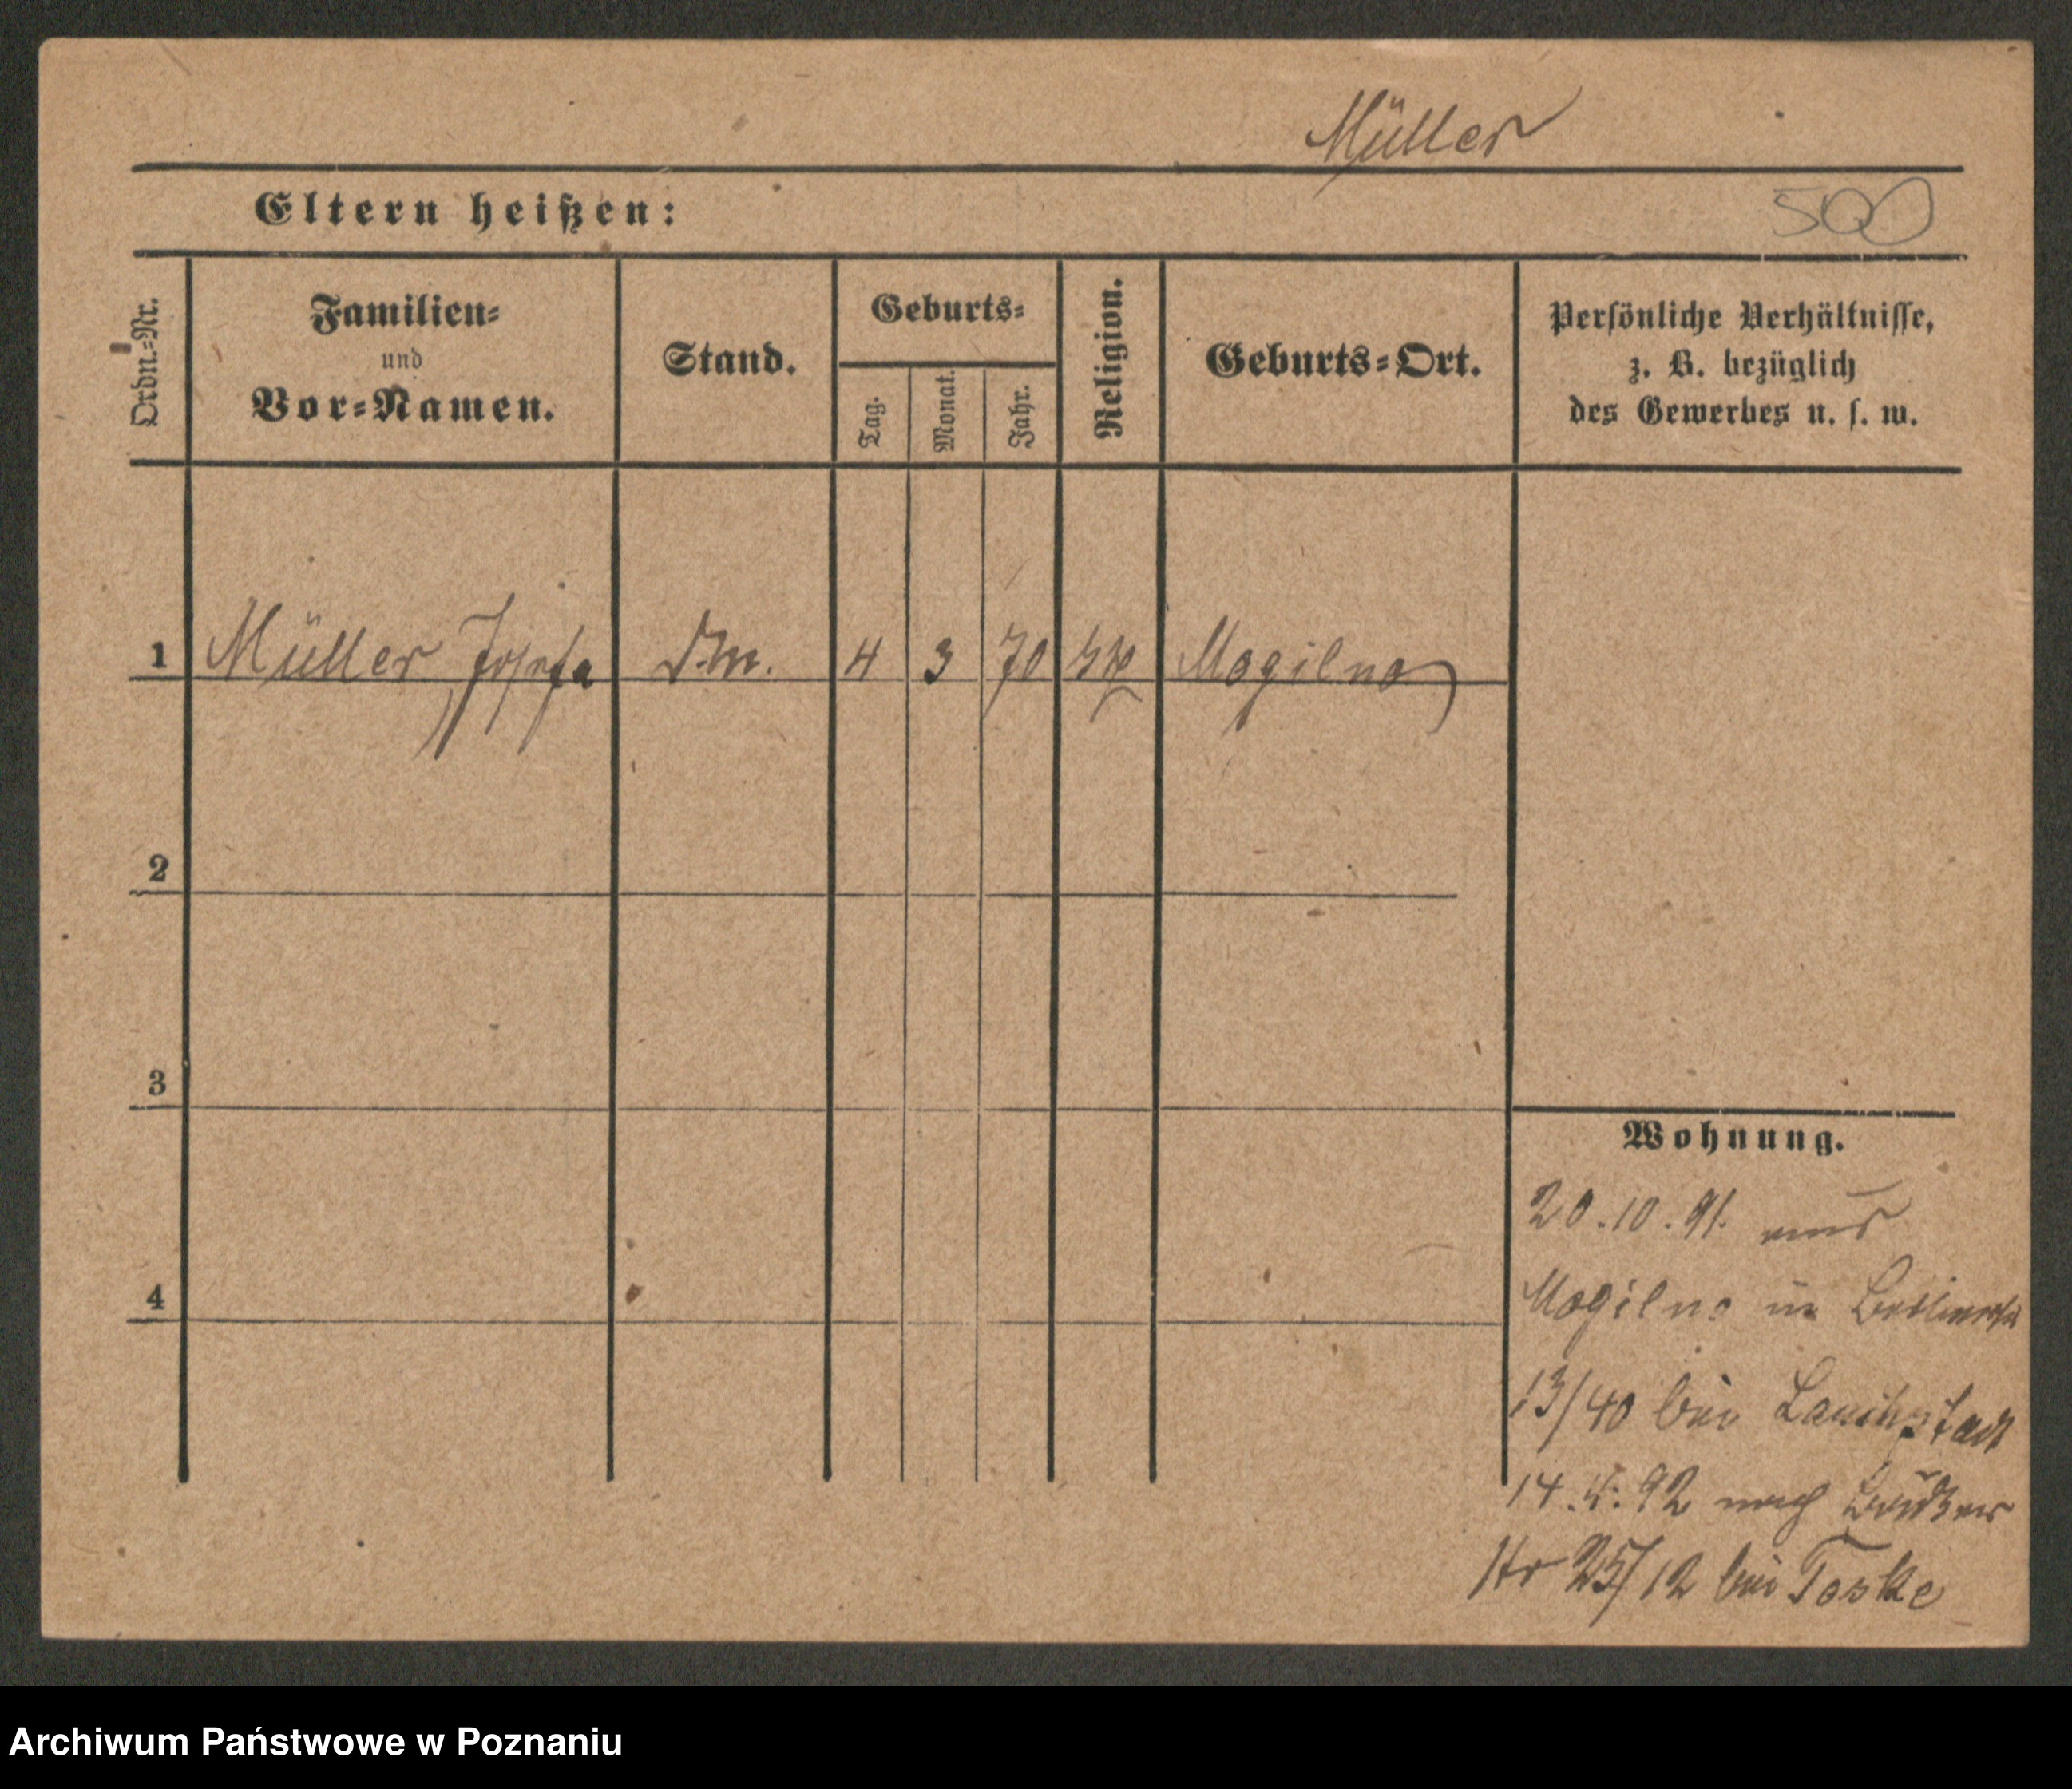 Müller
Eltern heißen:
500
Ordn.-Nr.
Familien-
und
Vor-Namen.
Stand.
Geburts-
Tag.
Monat.
Jahr.
Religion.
Geburts-Ort.
Persönliche Verhältnisse,
z. B. bezüglich
des Gewerbes u. s. w.
1 Müller Josefa 4 3 70 Mogilno
2
3
4
Wohnung.
20.10.91. aus
Mogilno in
13/40 bei
14. 92 nach
Str 25/12 bei Toske
Archiwum Państwowe w Poznaniu